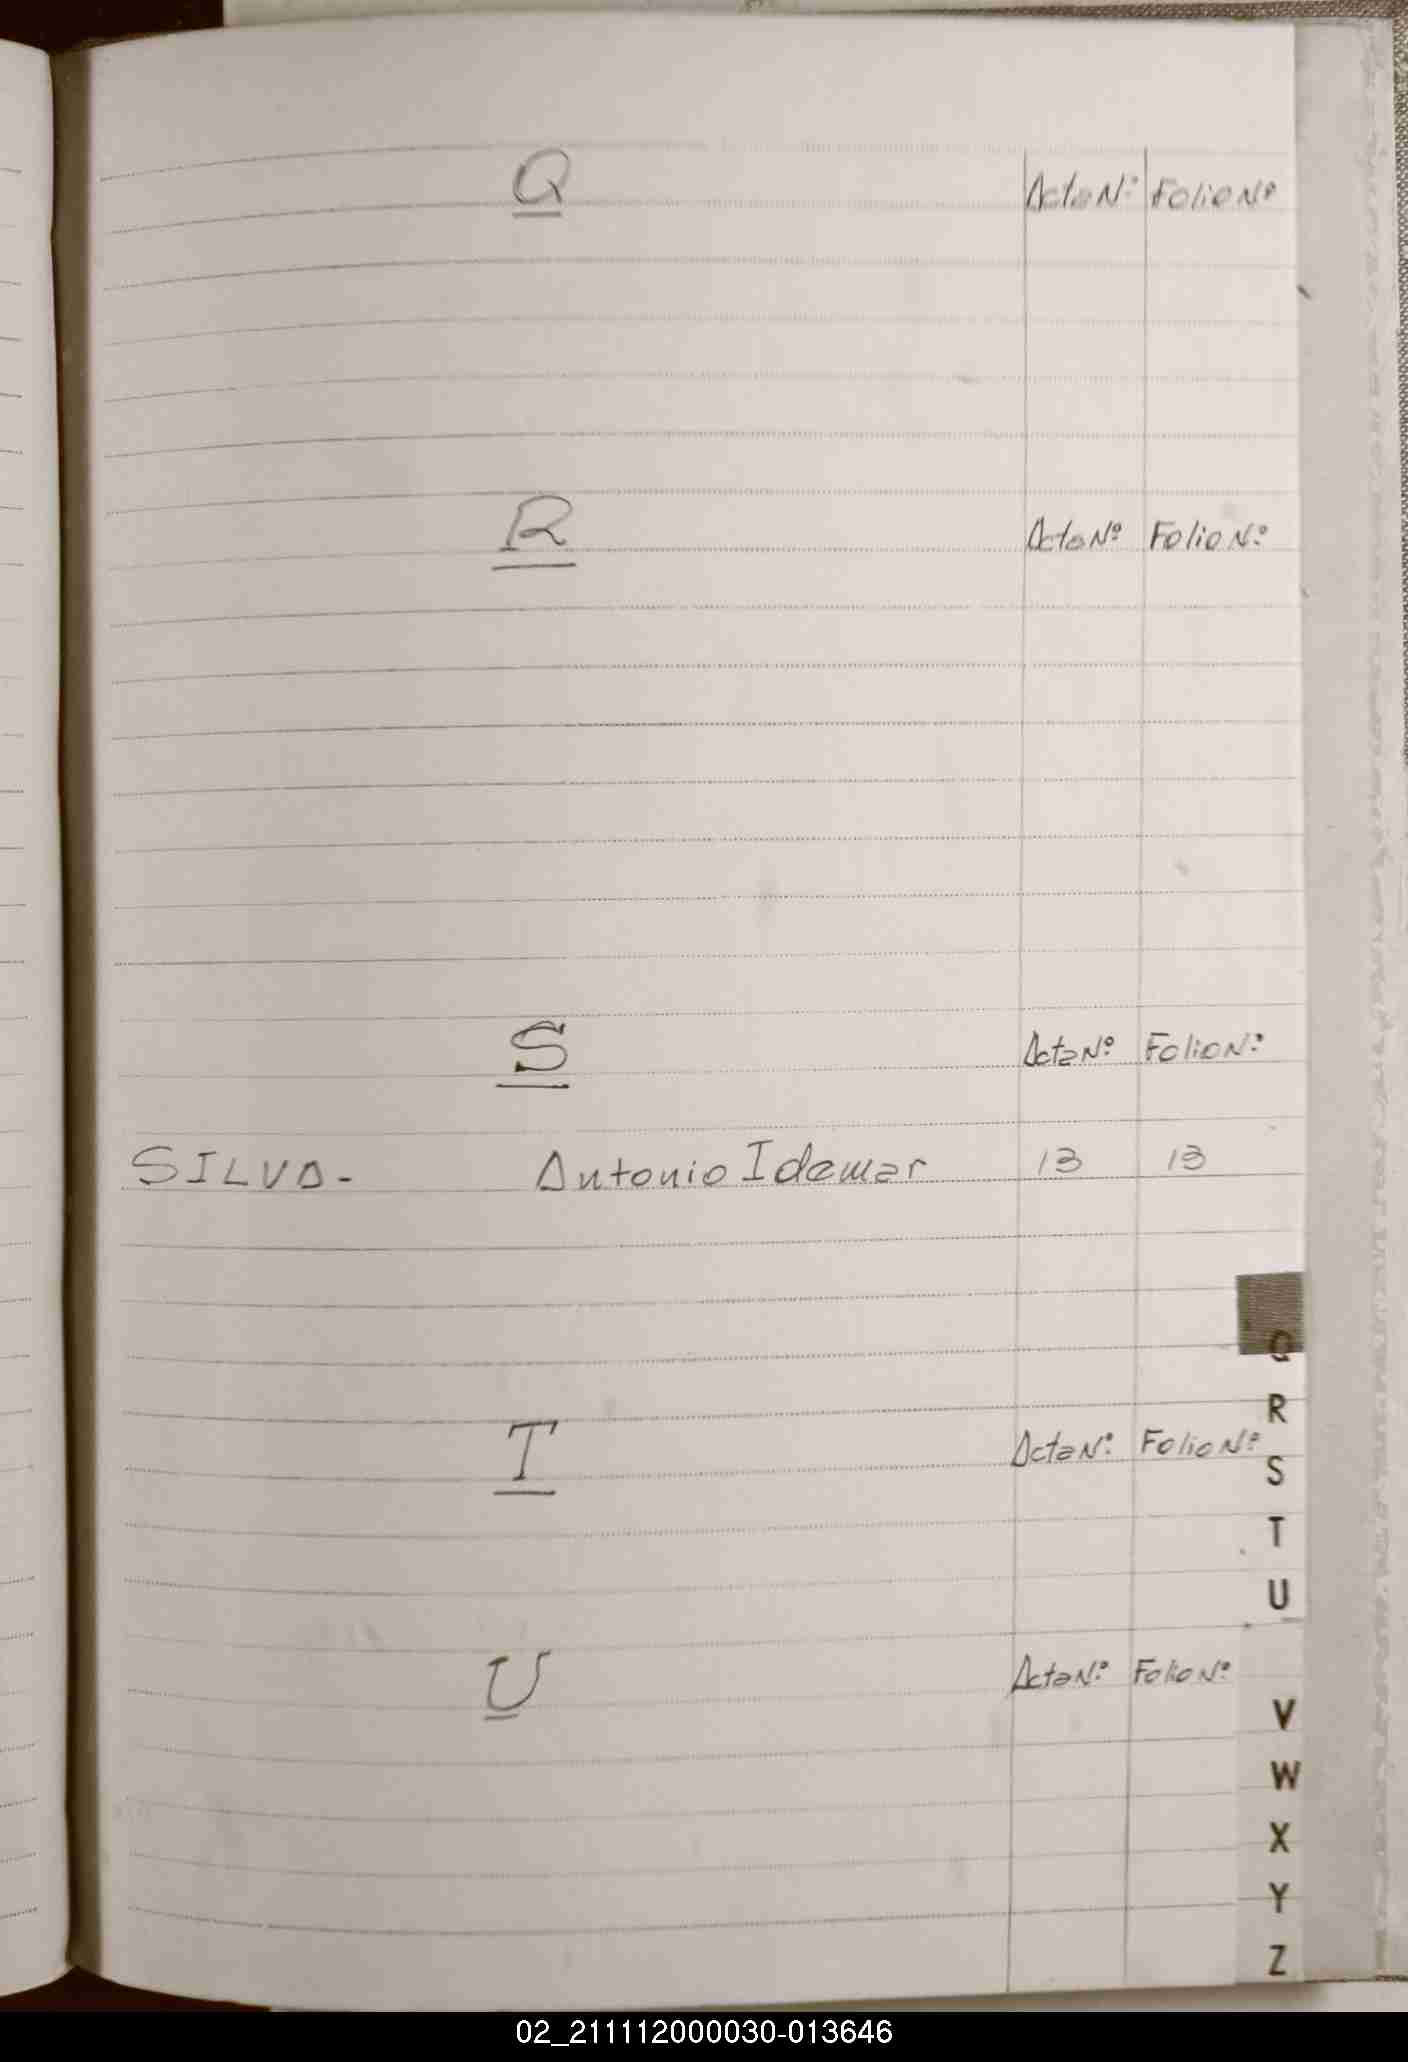 Q Acta Nº Folio Nº
R Acta Nº Folio Nº
S Acta Nº Folio Nº
SILVA- Antonio Idemar 13 13
Q
R
T Acta Nº Folio Nº
S
T
U
U Acta Nº Folio Nº
V
W
X
Y
Z
02_211112000030-013646